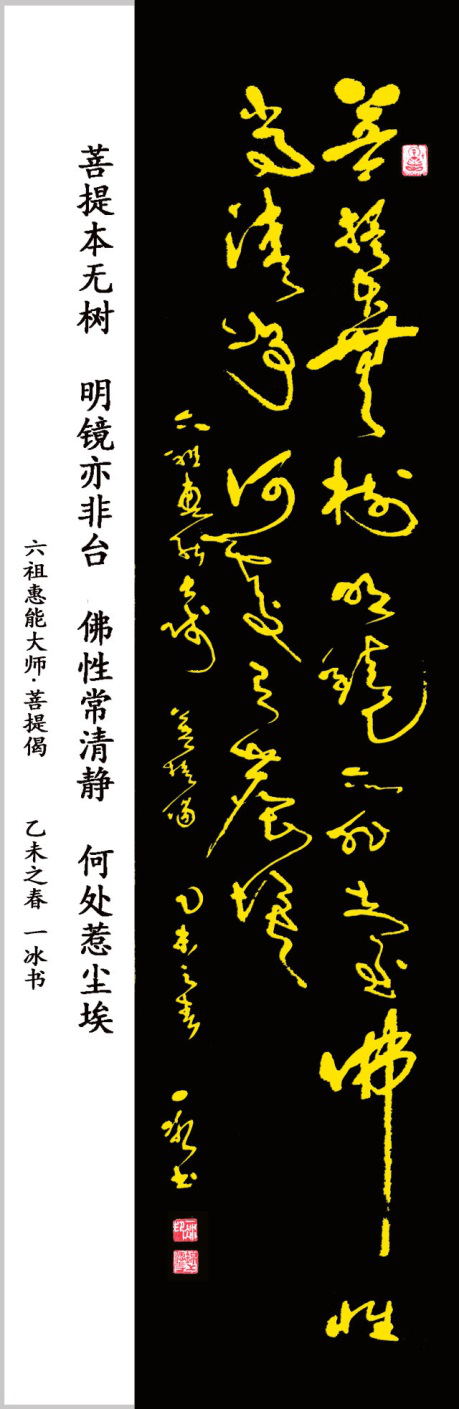 菩提本無樹明鏡亦非臺佛性
常清淨何處惹塵埃
六祖惠能大師 菩提偈 乙未之春 一冰書
菩提本无树 明镜亦非台 佛性常清静 何处惹尘埃
六祖惠能大师·菩提偈 乙未之春 一冰书